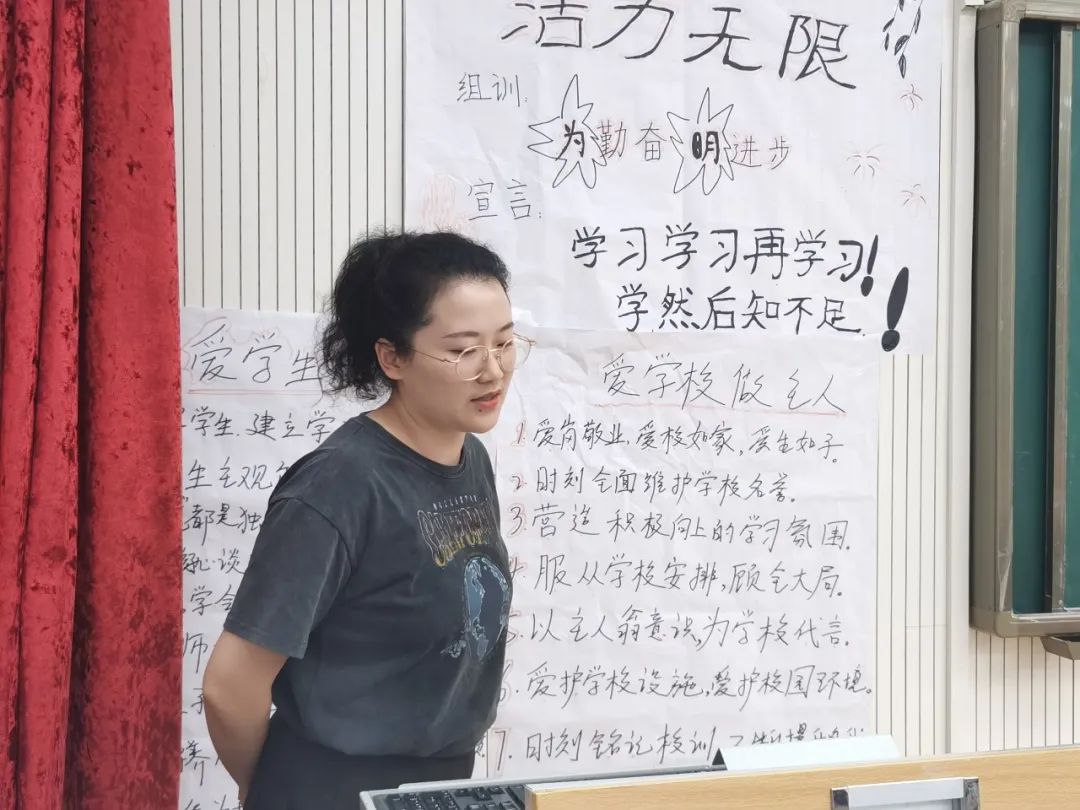 活力无限
组训:
为勤奋 明进步
宣言:
学习学习再学习!
学然后知不足!
爱学生
学生.建立学
生主观
都是独
谈
学会
师
养
爱学校做主人
1.爱岗敬业,爱校如家,爱生如子。
2.时刻全面维护学校名誉。
3.营造积极向上的学习氛围.
4.服从学校安排,顾全大局.
5.以主人翁意识,为学校代言.
6.爱护学校设施,爱护校园环境。
7.时刻铭记校训